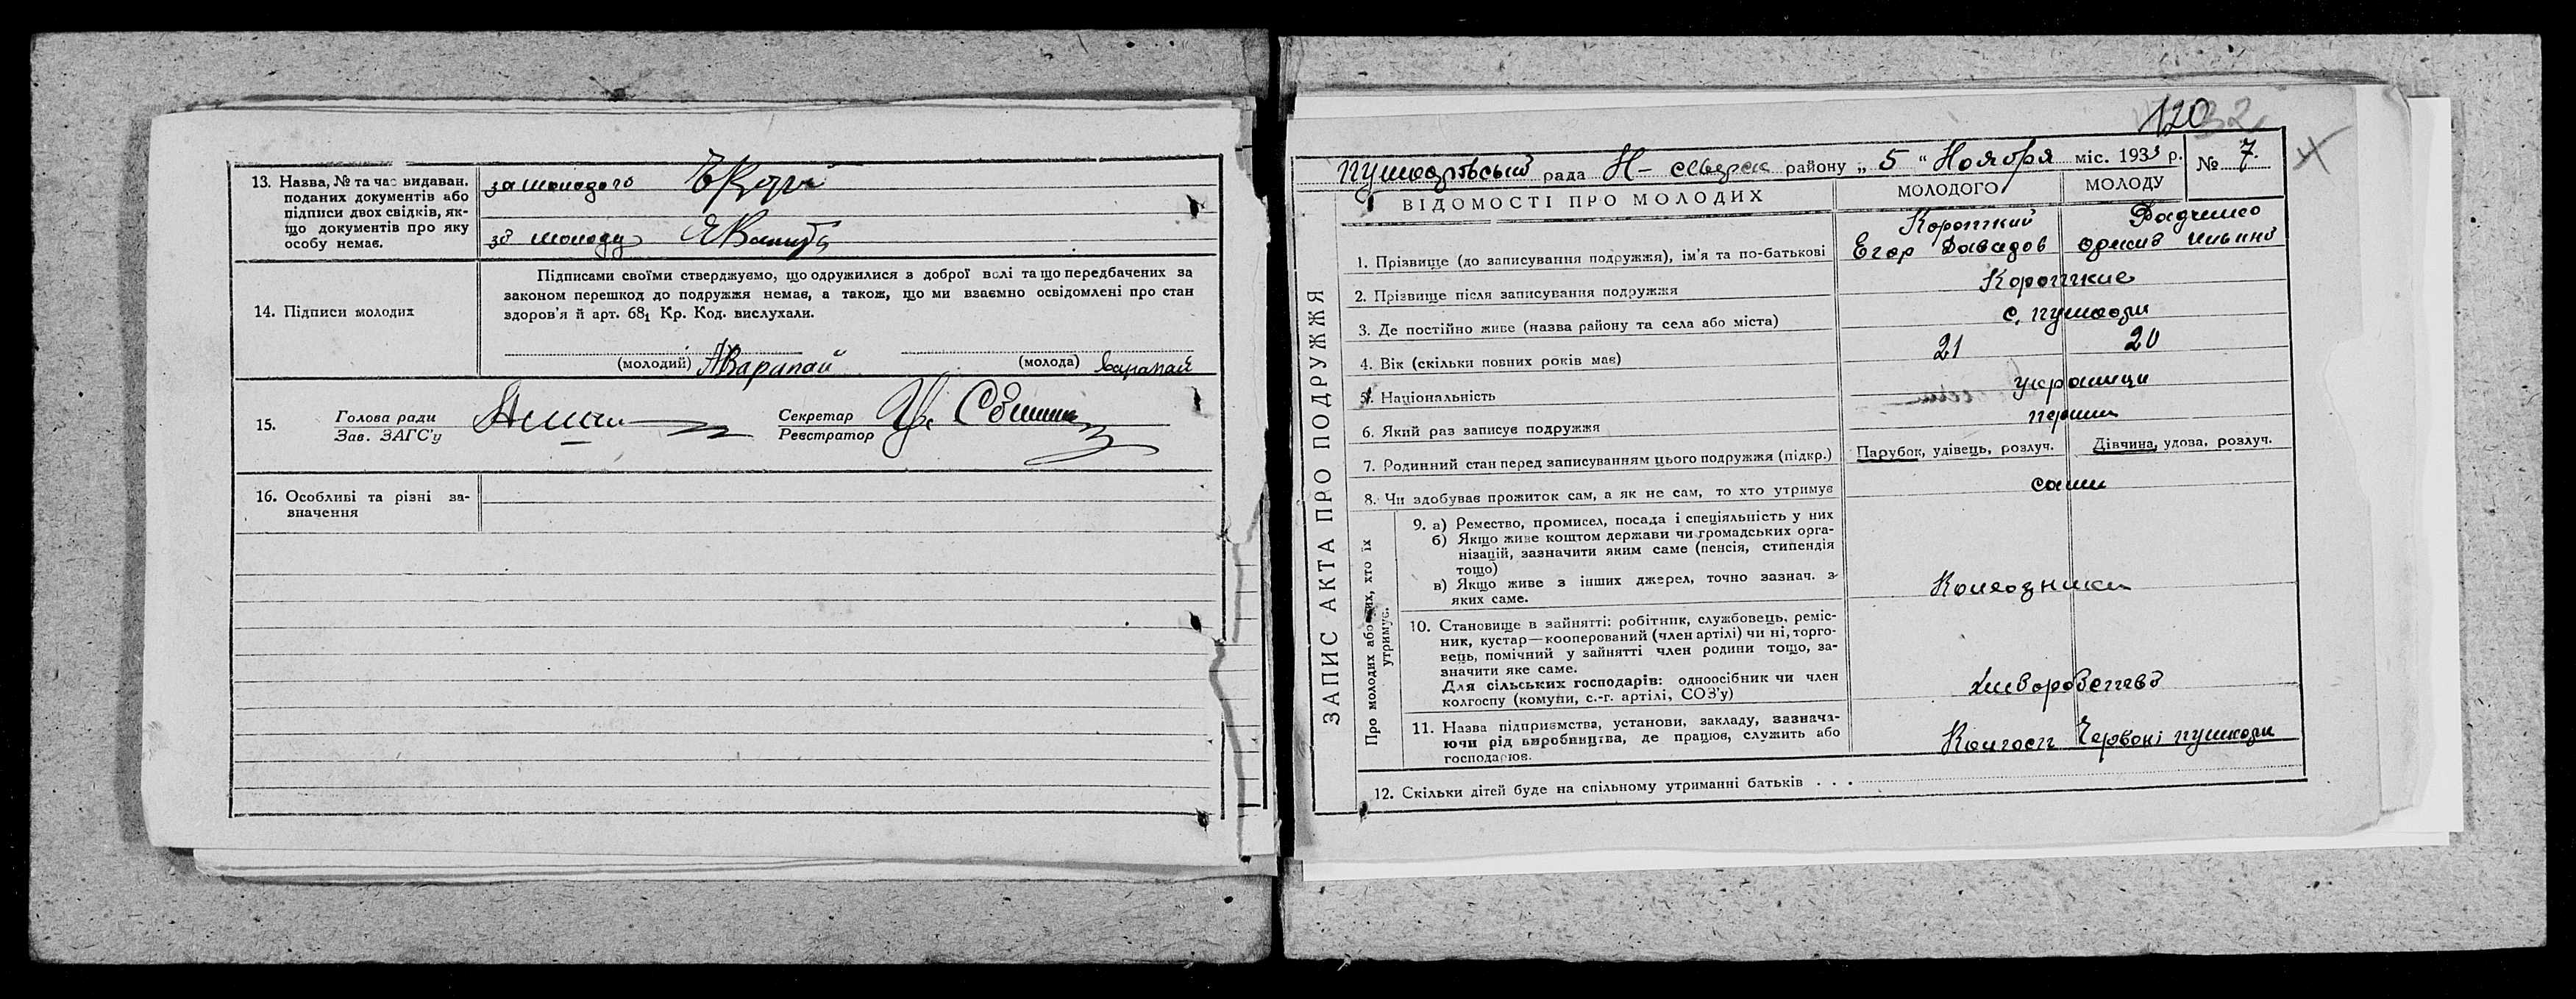 13. Назва, № та час видаван.
поданих документів або
підписи двох свідків, як-
що документів про яку
особу немає.
за молодого
за молоду
14. Підписи молодих
Підписами своїми стверджуємо, що одружилися з доброї волі та що передбачених за
законом перешкод до подружжя немає, а також, що ми взаємно освідомлені про стан
здоров'я й арт. 68₁ Кр. Код. вислухали.
(молодий) Варапай (молода) Варапай
15. Голова ради
Зав. ЗАГС'у
Секретар
Реєстратор
16. Особливі та різні за-
значення
120 32
рада Н- Северск району „ 5 " Ноября міс. 1933 р. № 7.
ЗАПИС АКТА ПРО ПОДРУЖЖЯ
ВІДОМОСТІ ПРО МОЛОДИХ МОЛОДОГО МОЛОДУ
1. Прізвище (до записування подружжя), ім'я та по-батькові Короткий Егор Давадов
2. Прізвище після записування подружжя Короткие
3. Де постійно живе (назва району та села або міста) с. пушкари
4. Вік (скільки повних років має) 21 20
5. Національність украинци
6. Який раз записує подружжя перший
7. Родинний стан перед записуванням цього подружжя (підкр.) Парубок, удівець, розлуч. Дівчина, удова, розлуч.
8. Чи здобуває прожиток сам, а як не сам, то хто утримує сами
Про молодих або тих, хто їх
утримує.
9. а) Ремество, промисел, посада і спеціяльність у них
б) Якщо живе коштом держави чи громадських орга-
нізацій, зазначити яким саме (пенсія, стипендія
тощо)
в) Якщо живе з інших джерел, точно зазнач. з
яких саме.
Колхозники
10. Становище в зайнятті: робітник, службовець, реміс-
ник, кустар—кооперований (член артілі) чи ні, торго-
вець, помічний у зайнятті член родини тощо, за-
значити яке саме.
Для сільських господарів: одноосібник чи член
колгоспу (комуни, с.-г. артілі, СОЗ'у)
11. Назва підприємства, установи, закладу, зазнача-
ючи рід виробництва, де працює, служить або
господарює.
Колгосп Червоні пушкари
12. Скільки дітей буде на спільному утриманні батьків . . .